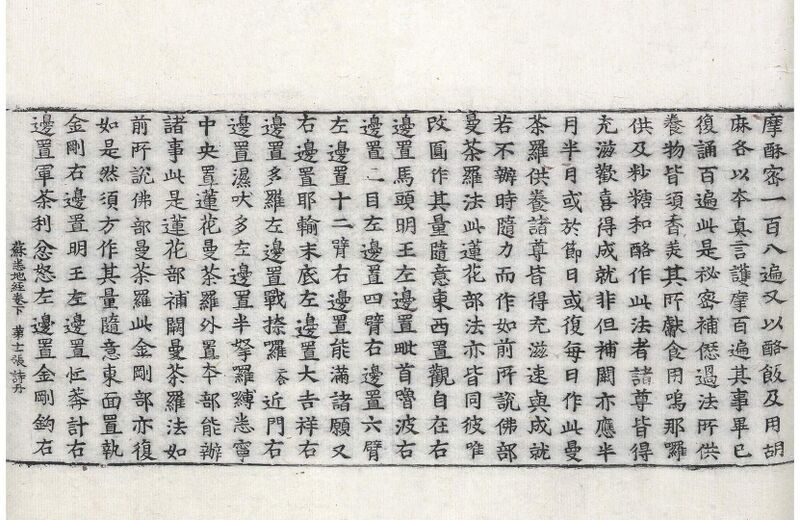 摩酥密一百八遍又以酪飯及用胡
麻各以夲真言護摩百遍其事畢已
復誦百遍此是祕密補愆過法所供
養物皆須香羙其所獻食用嗚那羅
供及粆糖和酪作此法者諸尊皆得
充滋歡喜得成就非但補闕亦應半
月半日或於節日或復每日作此曼
荼羅供養諸尊皆得充滋速與成就
若不辦時隨力而作如前所說佛部
曼荼羅法此蓮花部法亦皆同彼唯
改圎作其量隨意東西置觀自在右
邊置馬頭明王左邊置毗首嚕波右
邊置二目左邊置四臂右邊置六臂
左邊置十二臂右邊置能滿諸願又
右邊置耶輸末底左邊置大吉祥右
邊置多羅左邊置戰捺囉二合近門右
邊置濕吠多左邊置半拏囉縛悉寧
中央置蓮花曼荼羅外置夲部能辦
諸事此是蓮花部補闕曼荼羅法如
前所說佛部曼荼羅此金剛部亦復
如是然須方作其量隨意東面置執
金剛右邊置明王左邊置忙莾計右
邊置軍荼利忿怒左邊置金剛鈎右
蘇悉地經卷下 第十二張 詩丹